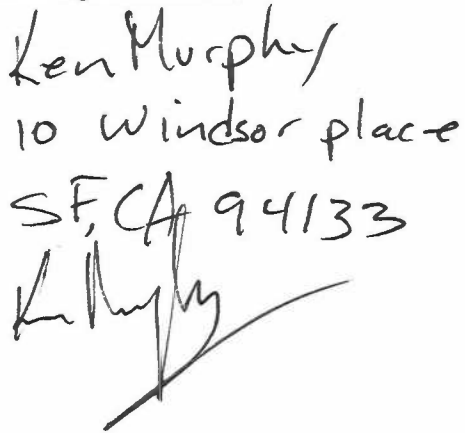 Ken Murphy
10 Windsor place
SF, CA 94133
Ken Murphy